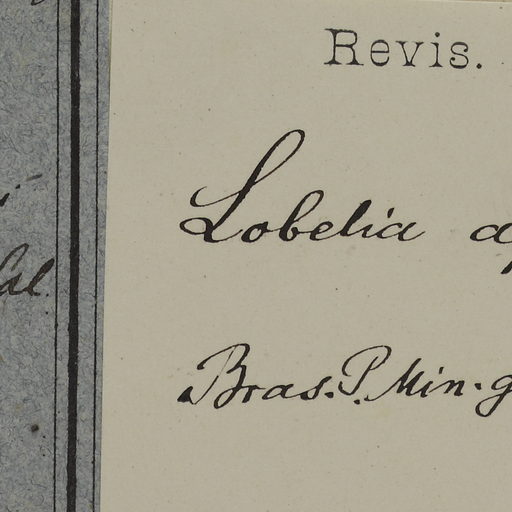 Revis.
Lobelia
Bras. P. Min. g